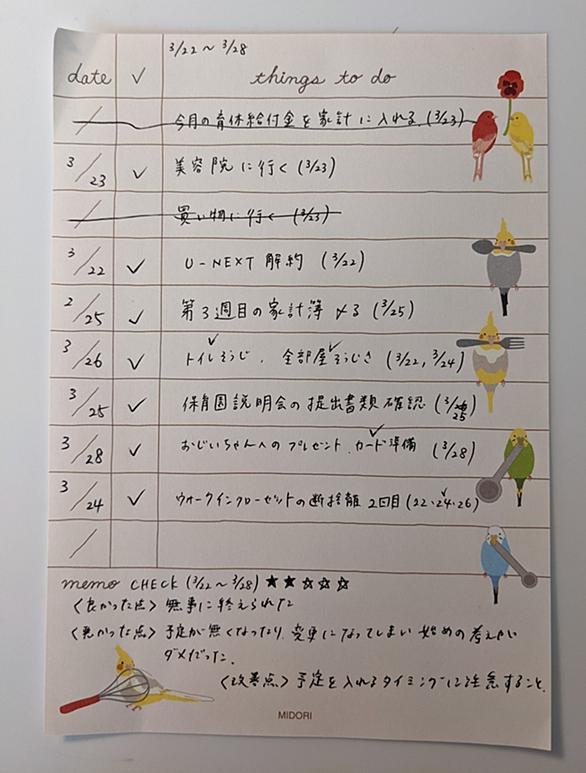 3/22～3/28
date ✓ things to do
/ 今月の育休給付金を家計に入れる (3/23)
3/23 ✓ 美容院に行く (3/23)
/ 買い物に行く (3/23)
3/22 ✓ U-NEXT 解約 (3/22)
2/25 ✓ 第3週目の家計簿〆る (3/25)
3/26 ✓ トイレそうじ、全部屋そうじき (3/22, 3/24)
3/25 ✓ 保育園説明会の提出書類確認 (3/25)
3/28 ✓ おじいちゃんへのプレゼント、カード準備 (3/28)
3/24 ✓ ウォークインクローゼットの断捨離 2回目 (22・24・26)
/
memo CHECK (3/22～3/28) ★★☆☆☆
〈良かった点〉 無事に終えられた
〈悪かった点〉 予定が無くなったり、変更になってしまい 始めの考えが
ダメだった.
〈改善点〉 予定を入れるタイミングに注意すること.
MIDORI